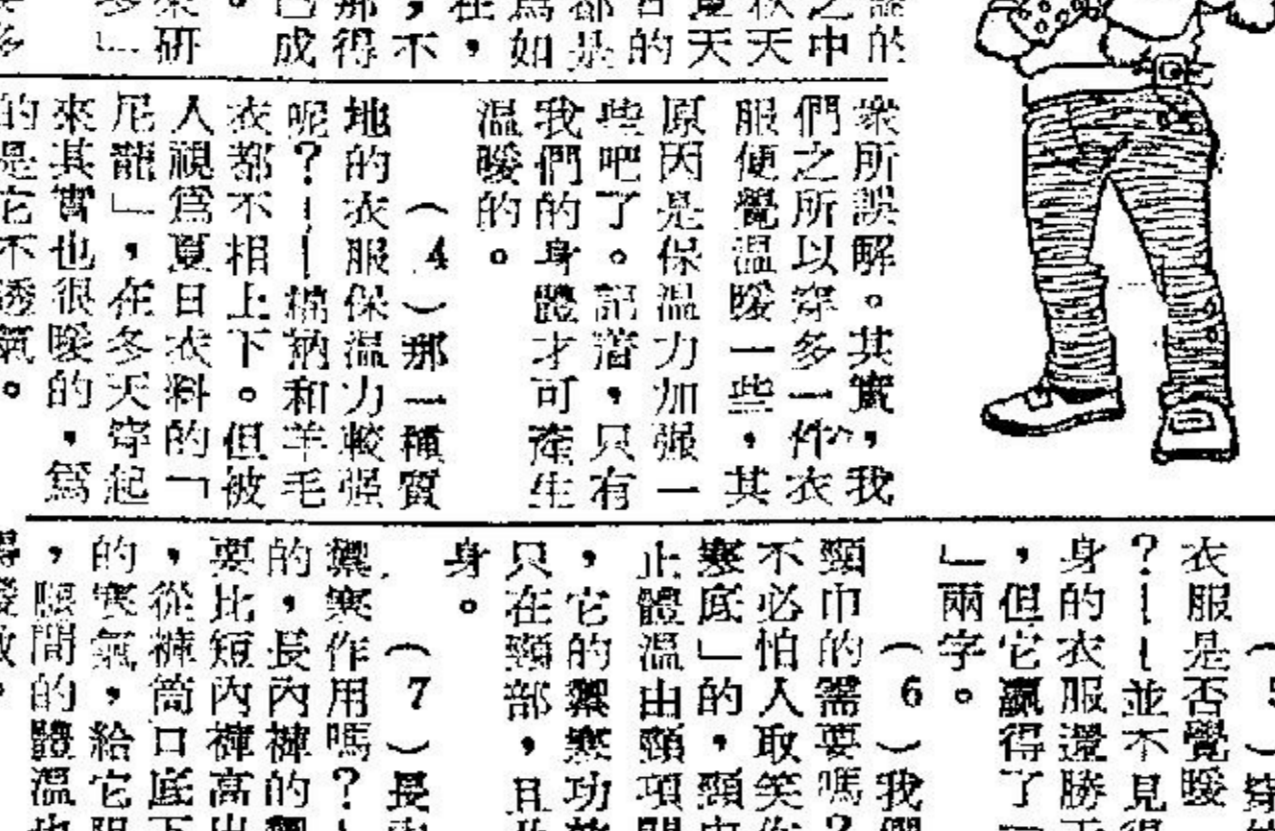 中
天
天
的
是
如
，
不
得
成
研
衆所誤解。其實，我
們之所以穿多一件衣
服便覺溫暖一些，其
原因是保溫力加强一
些吧了。記着，只有
我們的身體才可產生
溫暖的。
（4）那一種質
地的衣服保溫力較强
呢？——棉衲和羊毛
衣都不相上下。但被
人視爲夏日衣料的「
尼龍」，在冬天穿起
來其實也很暖的，爲
的是它不透氣。
（5）穿
衣服是否覺暖
？——並不見得
身的衣服還勝
，但它贏得了「
」兩字。
（6）我們
頸巾的需要嗎？
不必怕人取笑你
寒底」的，頸巾
止體溫由頸項
，它的禦寒功
只在頸部，且
身。
（7）長內
禦寒作用嗎？
的，長內褲的
要比短內褲高
，從褲筒口底下
的寒氣，給它
，腿間的體溫也